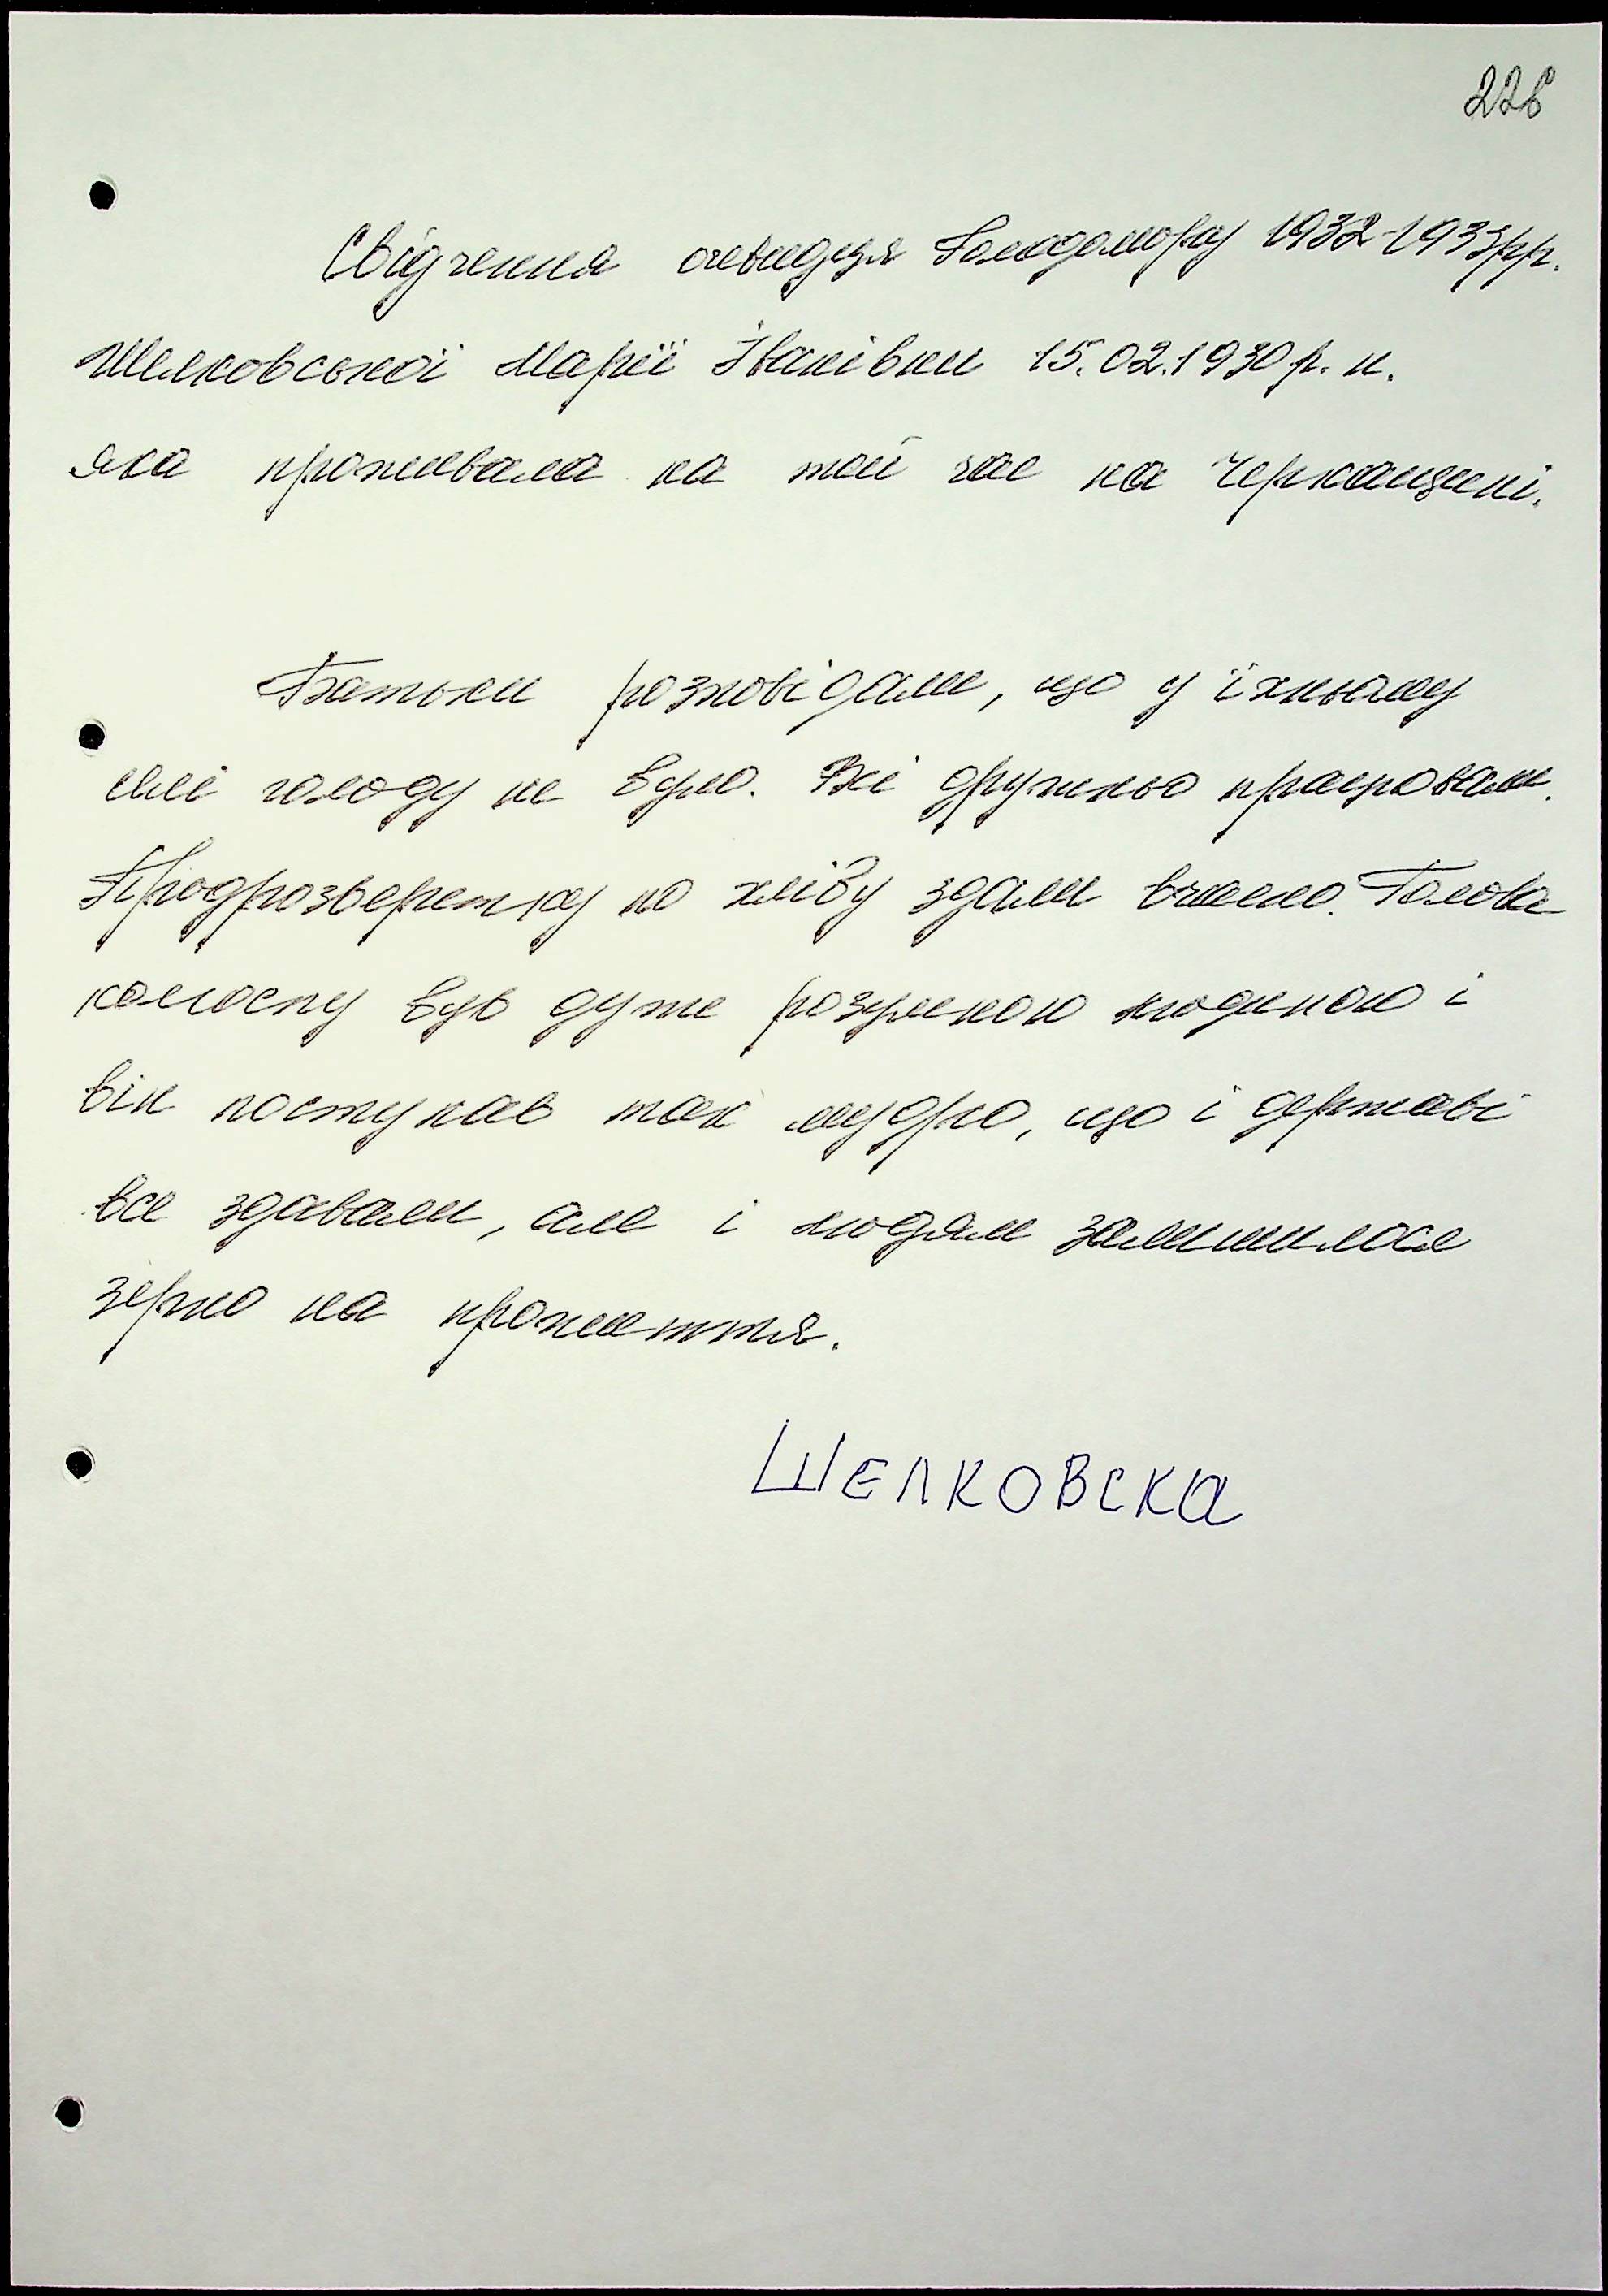 226
Свідчення очевидця Голодомору 1932-1933рр.
Шелковської Марії Іванівни 15.02.1930 р. н.
яка проживала на той час на Черкащині.
Батьки розповідали, що у їхньому
селі голоду не було. Всі дружньо працювали.
Продрозверстку по хлібу здали вчасно. Голова
колгоспу був дуже розумною людиною і
він поступав так мудро, що і державі
все здавали, але і людям залишилося
зерно на прожиття.
Шелковска